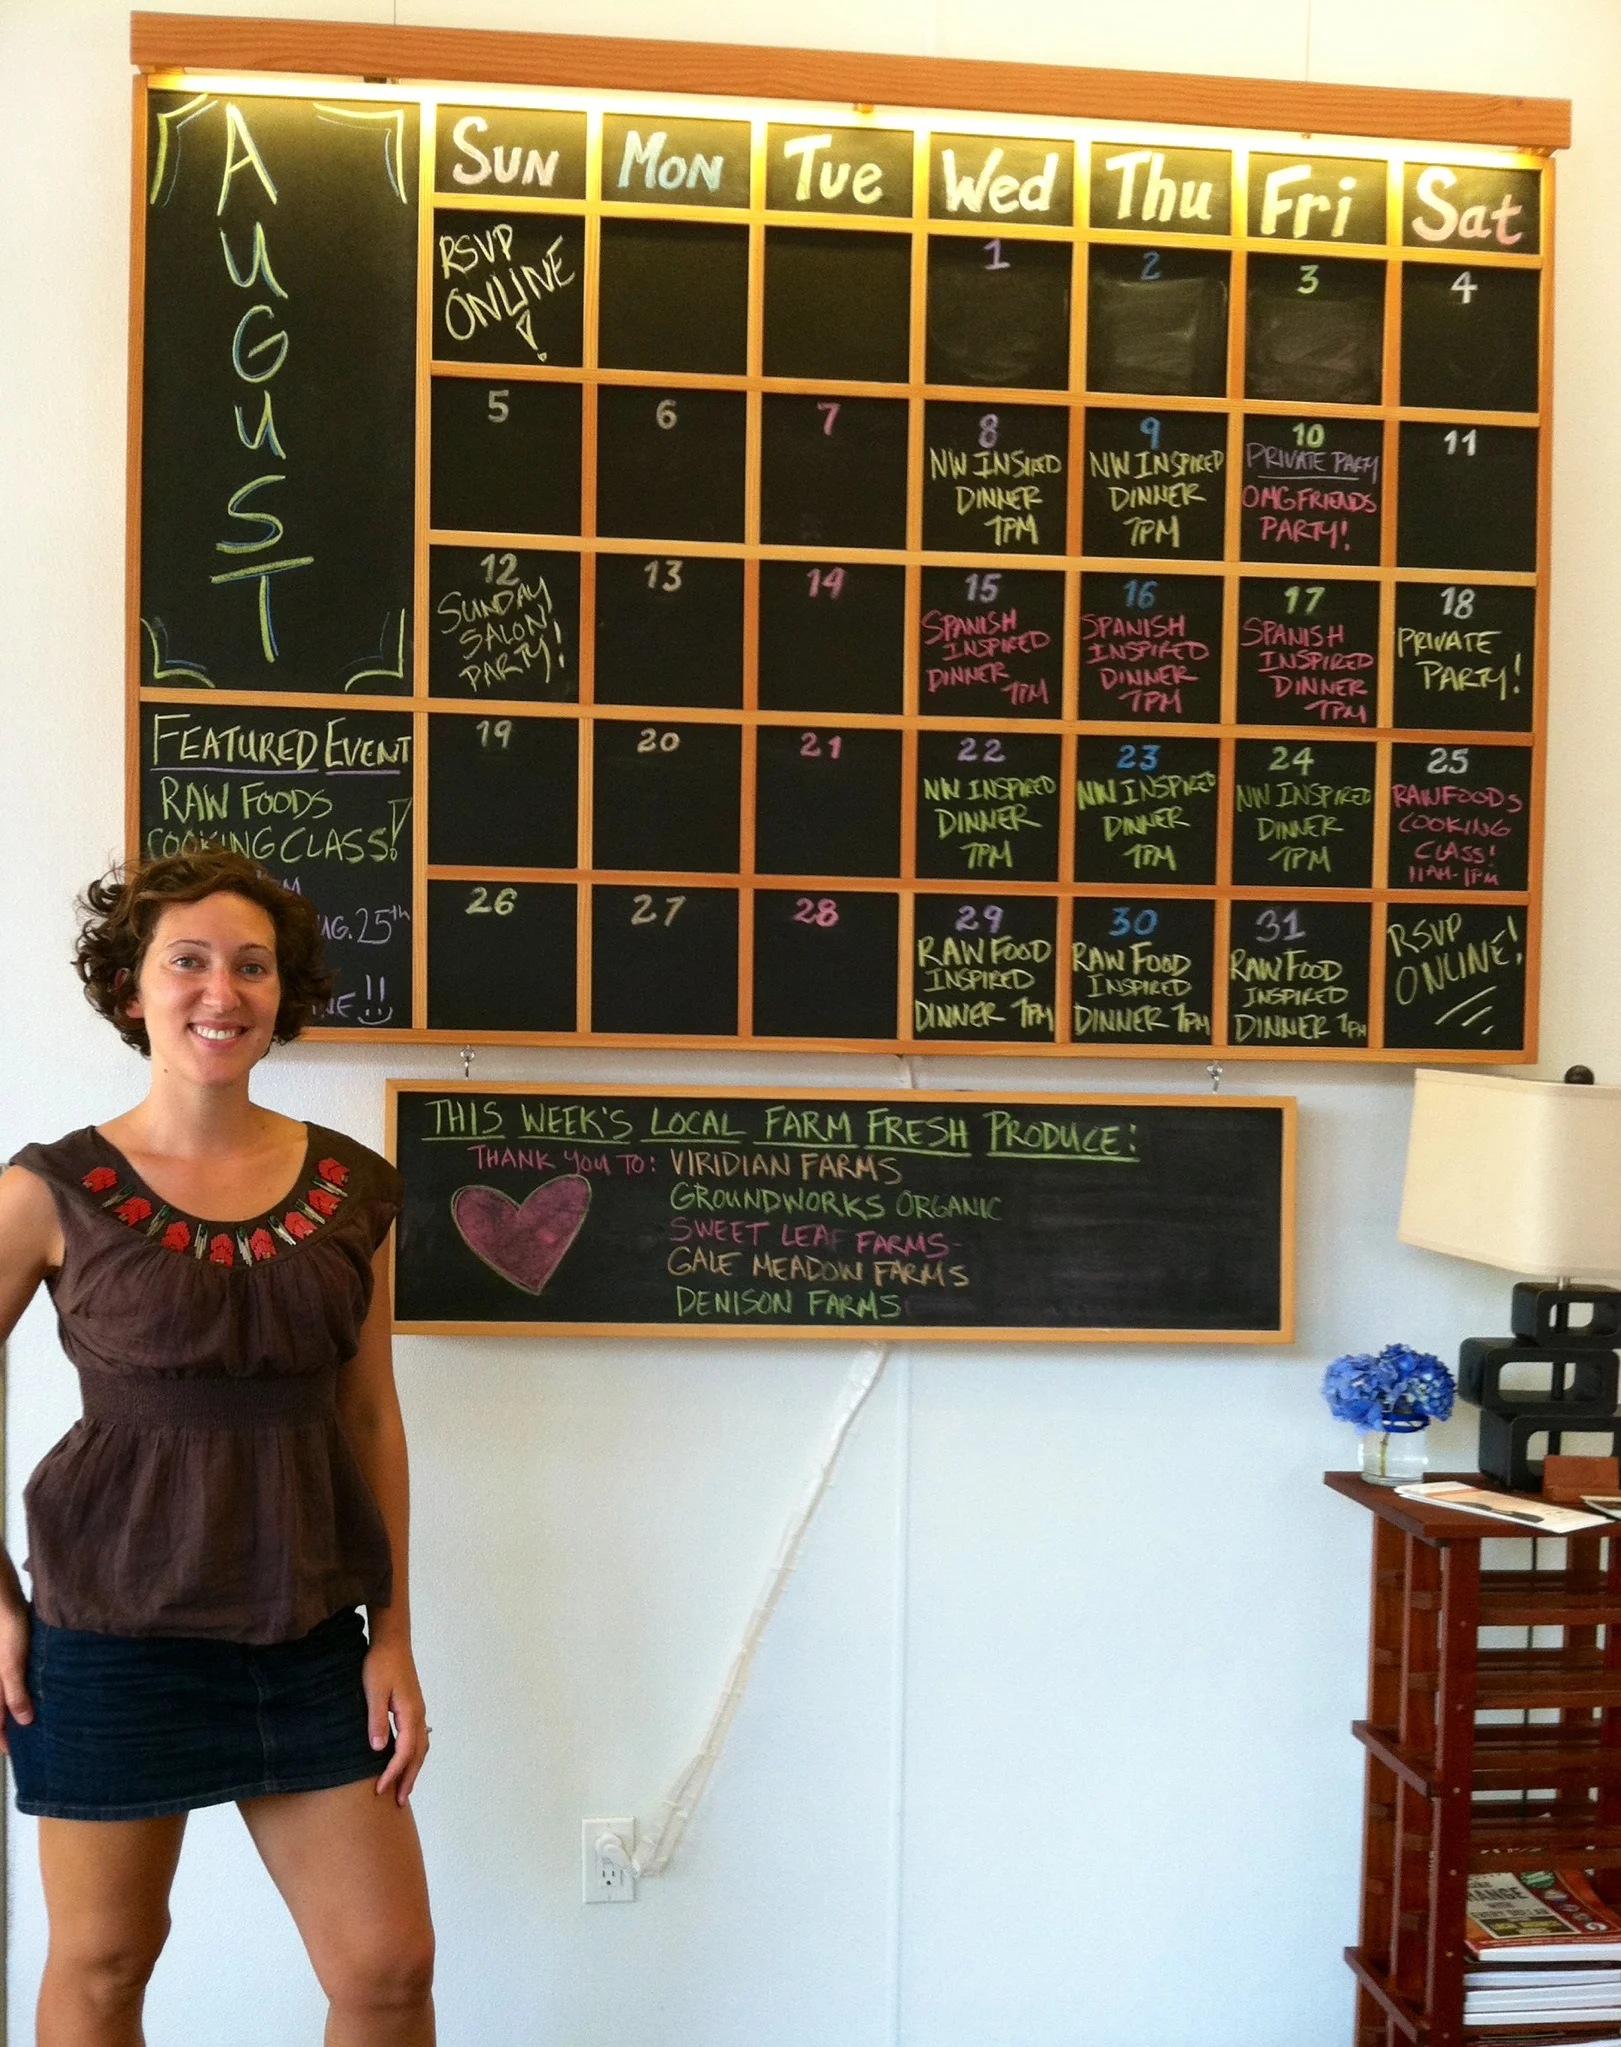 AUGUST
Sun Mon Tue Wed Thu Fri Sat
RSVP
ONLINE!
1
2
3
4
5
6
7
8
NW INSIRED
DINNER
7PM
9
NW INSPIRED
DINNER
7PM
10
PRIVATE PARTY
OMG FRIENDS
PARTY!
11
12
SUNDAY
SALON
PARTY!
13
14
15
SPANISH
INSPIRED
DINNER
7PM
16
SPANISH
INSPIRED
DINNER
7PM
17
SPANISH
INSPIRED
DINNER
7PM
18
PRIVATE
PARTY!
19
20
21
22
NW INSPIRED
DINNER
7PM
23
NW INSPIRED
DINNER
7PM
24
NW INSPIRED
DINNER
7PM
25
RAW FOODS
COOKING
CLASS!
11AM-1PM
26
27
28
29
RAW FOOD
INSPIRED
DINNER 7PM
30
RAW FOOD
INSPIRED
DINNER 7PM
31
RAW FOOD
INSPIRED
DINNER 7PM
RSVP
ONLINE!
FEATURED EVENT
RAW FOODS
COOKING CLASS!
25th
THIS WEEK'S LOCAL FARM FRESH PRODUCE:
THANK YOU TO: VIRIDIAN FARMS
GROUNDWORKS ORGANIC
SWEET LEAF FARMS-
GALE MEADOW FARMS
DENISON FARMS